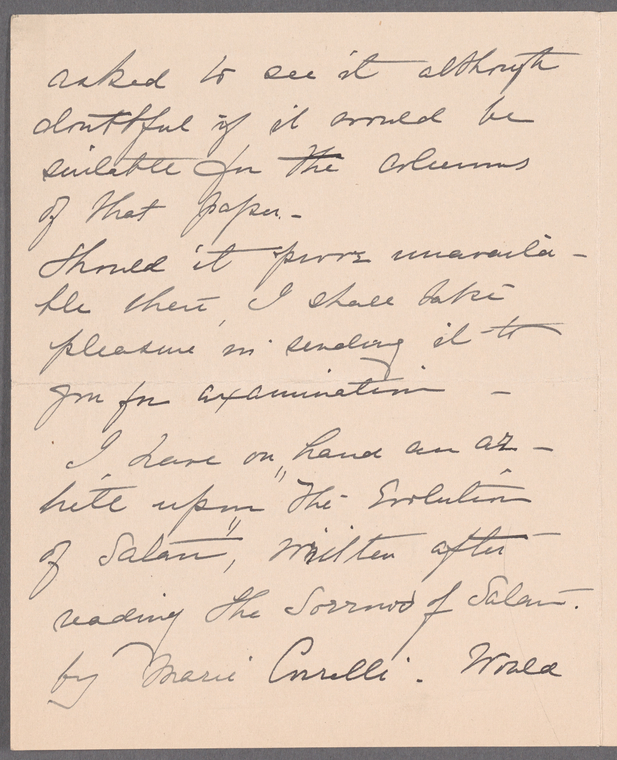 asked to see it although
doubtful if it would be
suitable for the columns
of that paper -
Should it prove unavaila -
ble there, I shall take
pleasure in sending it to
you for examination -
I have on hand an ar -
ticle upon "The Evolution
of Satan", written after
reading the Sorrows of Satan.
by Marie Corelli. Would